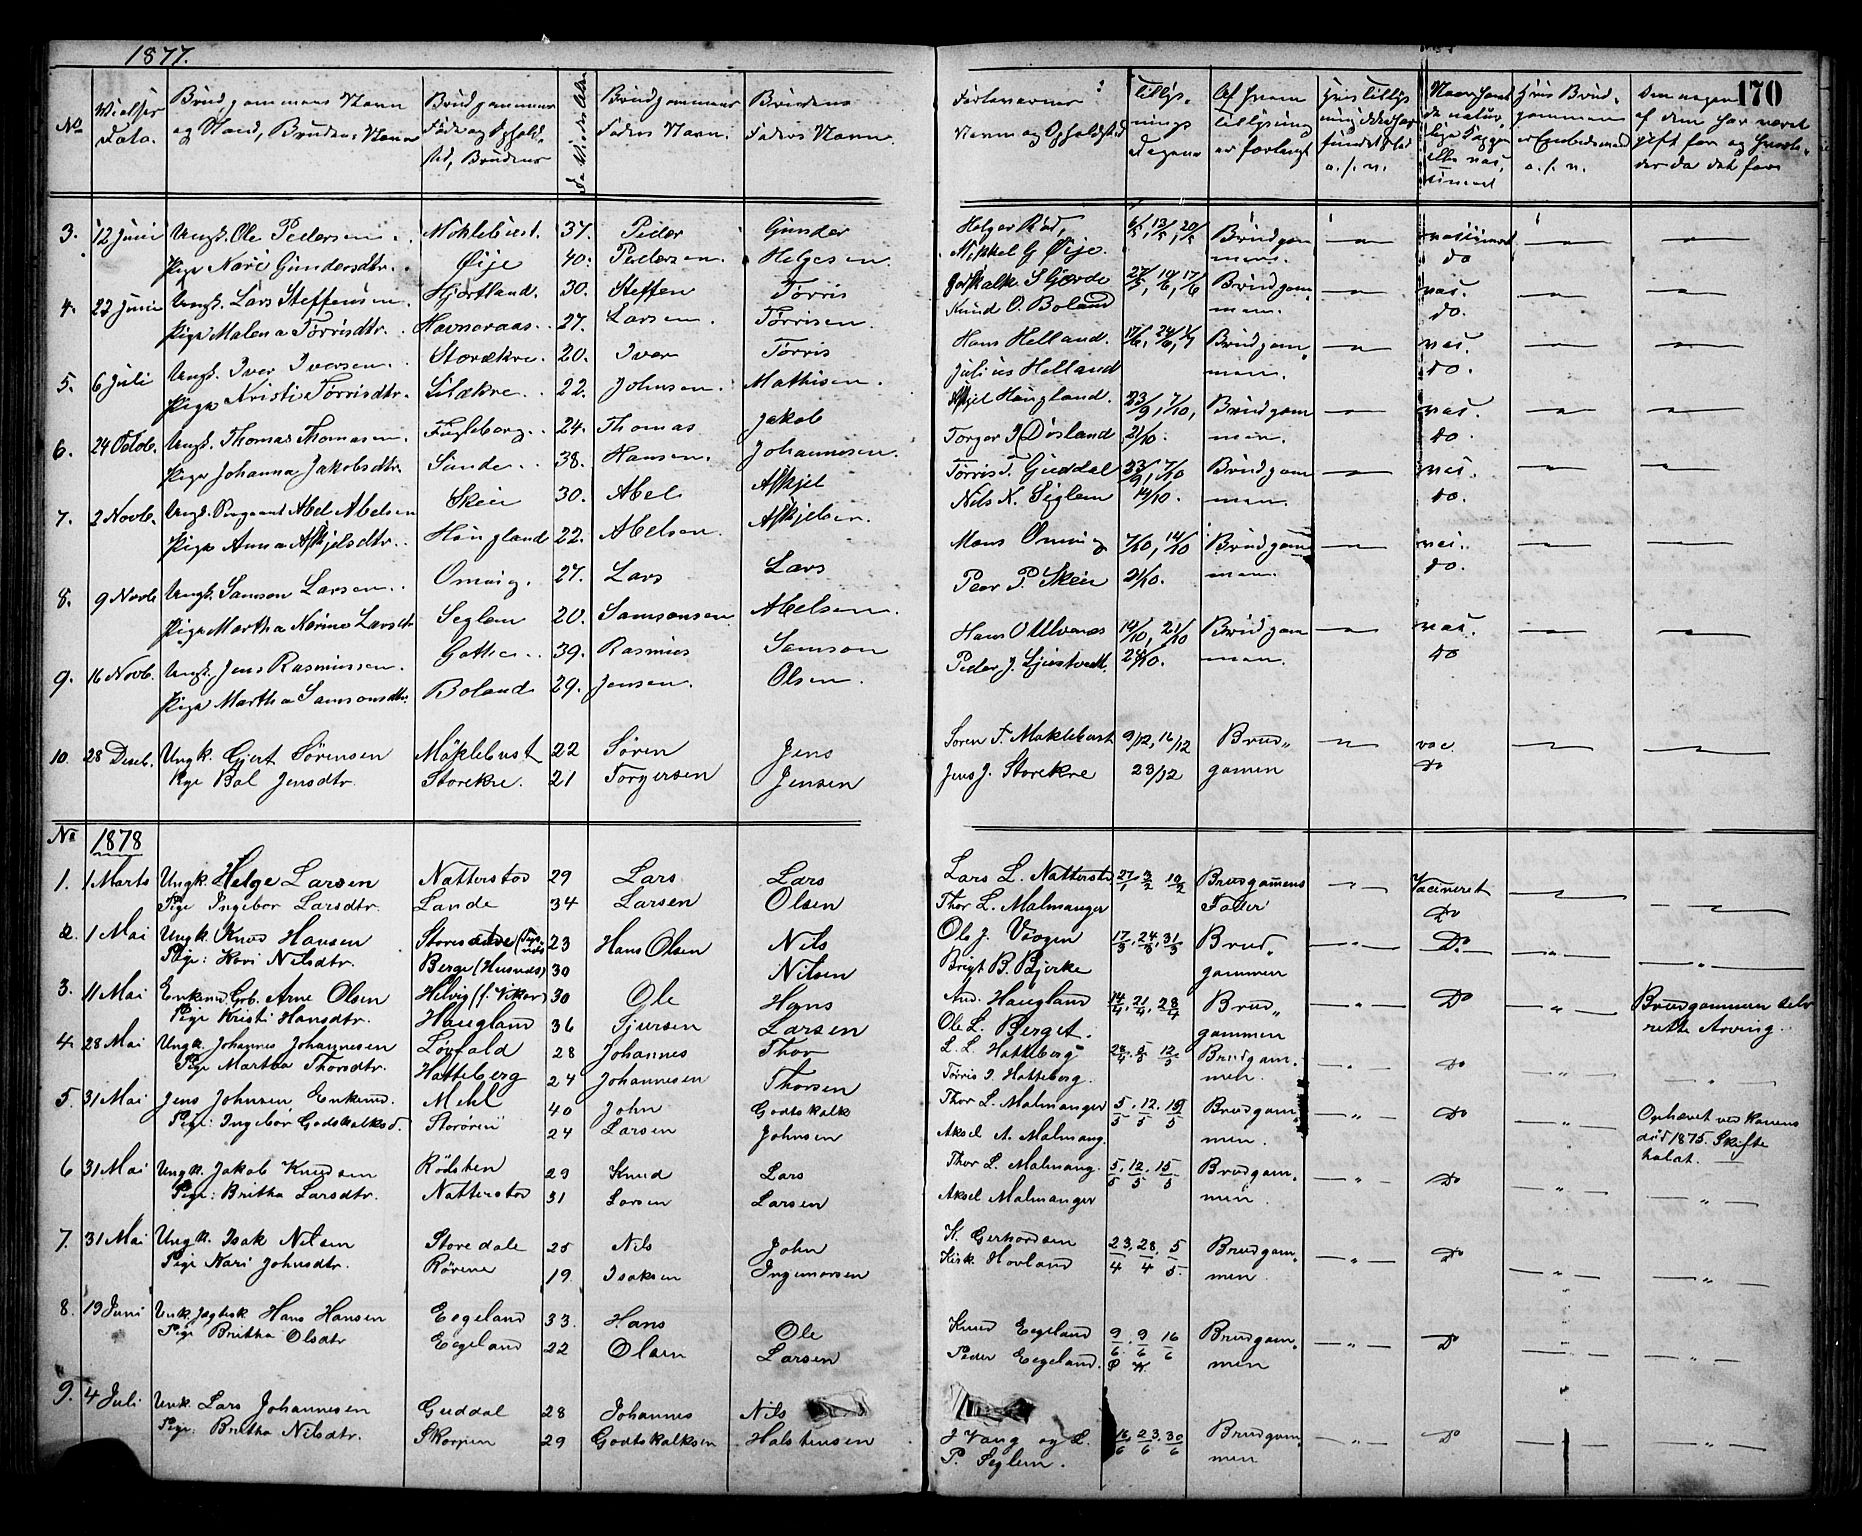 1877.
170
No
Vielses Dato.
Brudgommens Navn og Stand, Brudens Navn
Brudgommens Føde og Opholdsted, Brudens
Brudgommens Faders Navn.
Brudens Faders Navn.
Forlovernes Navn og Opholdsted
Tillysnings Dagene
Af hvem Tillysning er forlangt
3. 12 Juni Ungk. Ole Pedersen. 37. Peder Gunder Helger Rød, 6/5, 13/5, 20/5 Brudgom
Pige Nari Gundersdtr. Øije 40. Pedersen. Helgesen. Mikkel G Øije. mens. do
4. 22 Juni Ungk. Lars Steffensen Hjortland. 30. Steffen Tørris 27/5, 10/6, 17/6 Brudgom vac.
Pige Malena Tørrisdtr. Havneraas. 27. Larsen. Tørrisen. Knud O. Boland men. do.
5. 6 Juli Ungk. Iver Iversen. Storækre. 20. Iver Tørris Hans Helland. 17/6, 24/6, 1/7 Brudgom vac.
Pige Kristi Tørrisdtr. Lilækre. 22. Johnsen. Mathisen. Julius Helland men. do.
6. 24 Octob. Ungk. Thomas Thomasen. Fugleberg. 24. Thomas Jakob Haugland. 23/9, 7/10, Brudgom vac.
Pige Johanna Jakobsdtr. Sunde. 38. Hansen. Johannesen. Torger J Døsland 21/10. men. do.
7. 2 Novb. Ungk. Abel Abelsen Skeie 30. Abel Askjel Tørris T. Guddal 23/9, 7/10 Brudgom vac.
Pige Anna Askjelsdtr. Haugland 22. Abelsen. Askjelsen. Nils N. Seglem 14/10. men. do.
8. 9 Novb Ungk. Samson Larsen. Omvig. 27. Lars Lars Mons Omvig 7/10, 14/10 Brudgom vac.
Pige Martha Larsdtr Seglem 20. Samsonsen Abelsen. Peer P. Skeie 21/10. men. do.
9. 16 Novb. Ungk. Jens Rasmussen. 39. Rasmus Samson Hans O Ulvenes 14/10, 21/10 Brudgom vac.
Pige Martha Samsonsdtr. Boland 29. Jensen. Olsen. Peder J. 28/10. men. do
10. 28 Deceb. Ungk. Gjert Sørensen Mäklebust 22 Søren Jens Søren T. Maklebust 9/12, 16/12 Brud„ vac.
Pige Bol Jensdtr. Storekre. 21 Torgersen Jensen Jens J. Storekre 23/12 gomen Do
No 1878
1. 1 Marts Ungk. Helge Larsen Natterstad 29 Lars Lars Lars L. Nattersta 27/1 3/2 10/2 Brudgomens Vacineret
Pige Ingebor Larsdtr. Lande 34 Larsen Olsen Thor L. Malmanger Fader Do
2. 1 Mai Ungk. Knud Hansen 23 Hans Olsen Nils Ole J. Vaagen 17/3 . 24/3 . 31/3 Brud Do.
Pige: Kari Nilsdtr. Berge (Husnes) 30 Nilsen Brigt B. Bjerke gommen
3. 11 Mai Enkemd. Grb. Arne Olsen Helvig (f. Vikør) 30 Ole Hans And. Haugland 14/4 . 21/4 . 28/4 Brud„ Do Brudgommen
Pige Kristi Hansdtr. Haugland 36 Sjursen Larsen Ole L. Berget. gommen rette Arving.
4. 28 Mai Ungk. Johannes Johannesen Løvfald 28 Johannes Thor L. L. Hatteberg 28/4 . 5/5 12/5 Brudgom„ Do
Pige Martha Thorsdtr. Hatteberg 24 Johannesen Thorsen Tørris J. Hatteberg. men.
5. 31 Mai Jens Johnsen Enkemd. Mehl 40 John Godtskalk Thor L. Malmanger 5/5 . 12/5 . 15/5 Brudgom„ Do Ophævet ved Konens
Pige: Ingebor Godskalksd. Storøen 24 Larsen Johnsen Aksel A. Malmang. men. død 1875. Skifte
holdt.
6 31 Mai Ungk. Jakob Knudsen Rødsten 23 Knud Lars Thor L. Malmang. 5/5 . 12/5 . 15/5 Brudgom„ Do
Pige: Britha Larsdtr. Natterstad 31 Larsen Larsen Aksel Malmanger men.
7. 31 Mai Ungk. Isak Nilsen Storedale 25 Nils John K. Gerhardsen 23/4 . 28/4 . 5/5 Brudgom„ Do
Pige Nari Johnsdtr. Rørene 19 Isaksen Ingemorsen Kirk. Hovland men.
8. 19 Juni Unk. Hans Hansen Eegeland 33. Hans Ole Knud Eegeland 9/6 . 9/6 16/6 Brudgom„ Do
Pige Britha Olsdtr Eegeland 22 Olsen Larsen Peder Eegeland. men
9. 4 Juli Unk. Lars Johannesen Guddal 28 Johannes Nils J Vang og L. 16/6 . 23/6 . 30/6 Brudgom„ Do
Pige: Britha Nilsdtr. Skorpen 29 Godtskalksen Halstensen P. Seglem. men